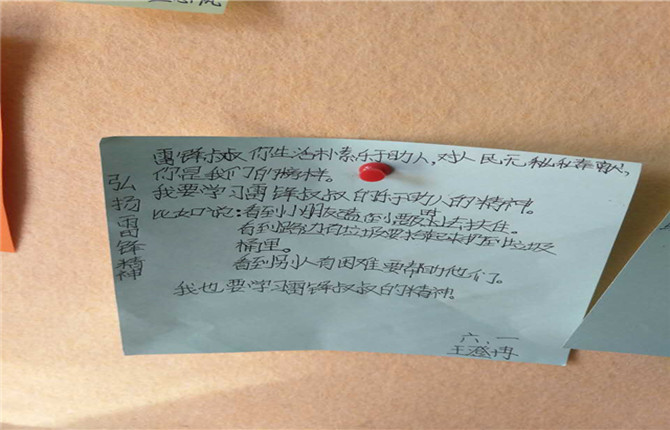 弘扬雷锋精神
雷锋叔叔你生活朴素乐于助人,对人民无私奉献,
你是我们的榜样。
我要学习雷锋叔叔的乐于助人的精神。
比如说:看到小朋友
看到路边有垃圾要捡起来扔到垃圾
桶里。
看到别人有困难要帮助他们。
我也要学习雷锋叔叔的精神。
六、一
王